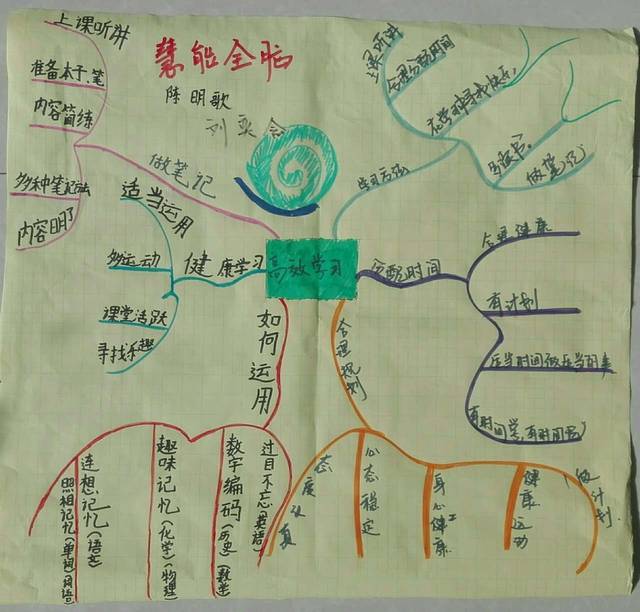 慧能全脑
陈明歌
高效学习
做笔记
上课听讲
准备本子、笔
内容简练
多种笔记法
内容明了
健康学习
适当运用
多运动
课堂活跃
寻找乐趣
如何运用
过目不忘(英语)
数字编码(历史)(数学)
趣味记忆(化学)(物理)
连想记忆(语文)
照相记忆(单词)(词语)
学习方法
上课听讲
合理分配时间
在学习中寻找快乐
多读书
做笔记
分配时间
合理健康
有计划
应当时间做应当的事
合理规划
态度认真
心态稳定
身心健康
健康运动
做计划